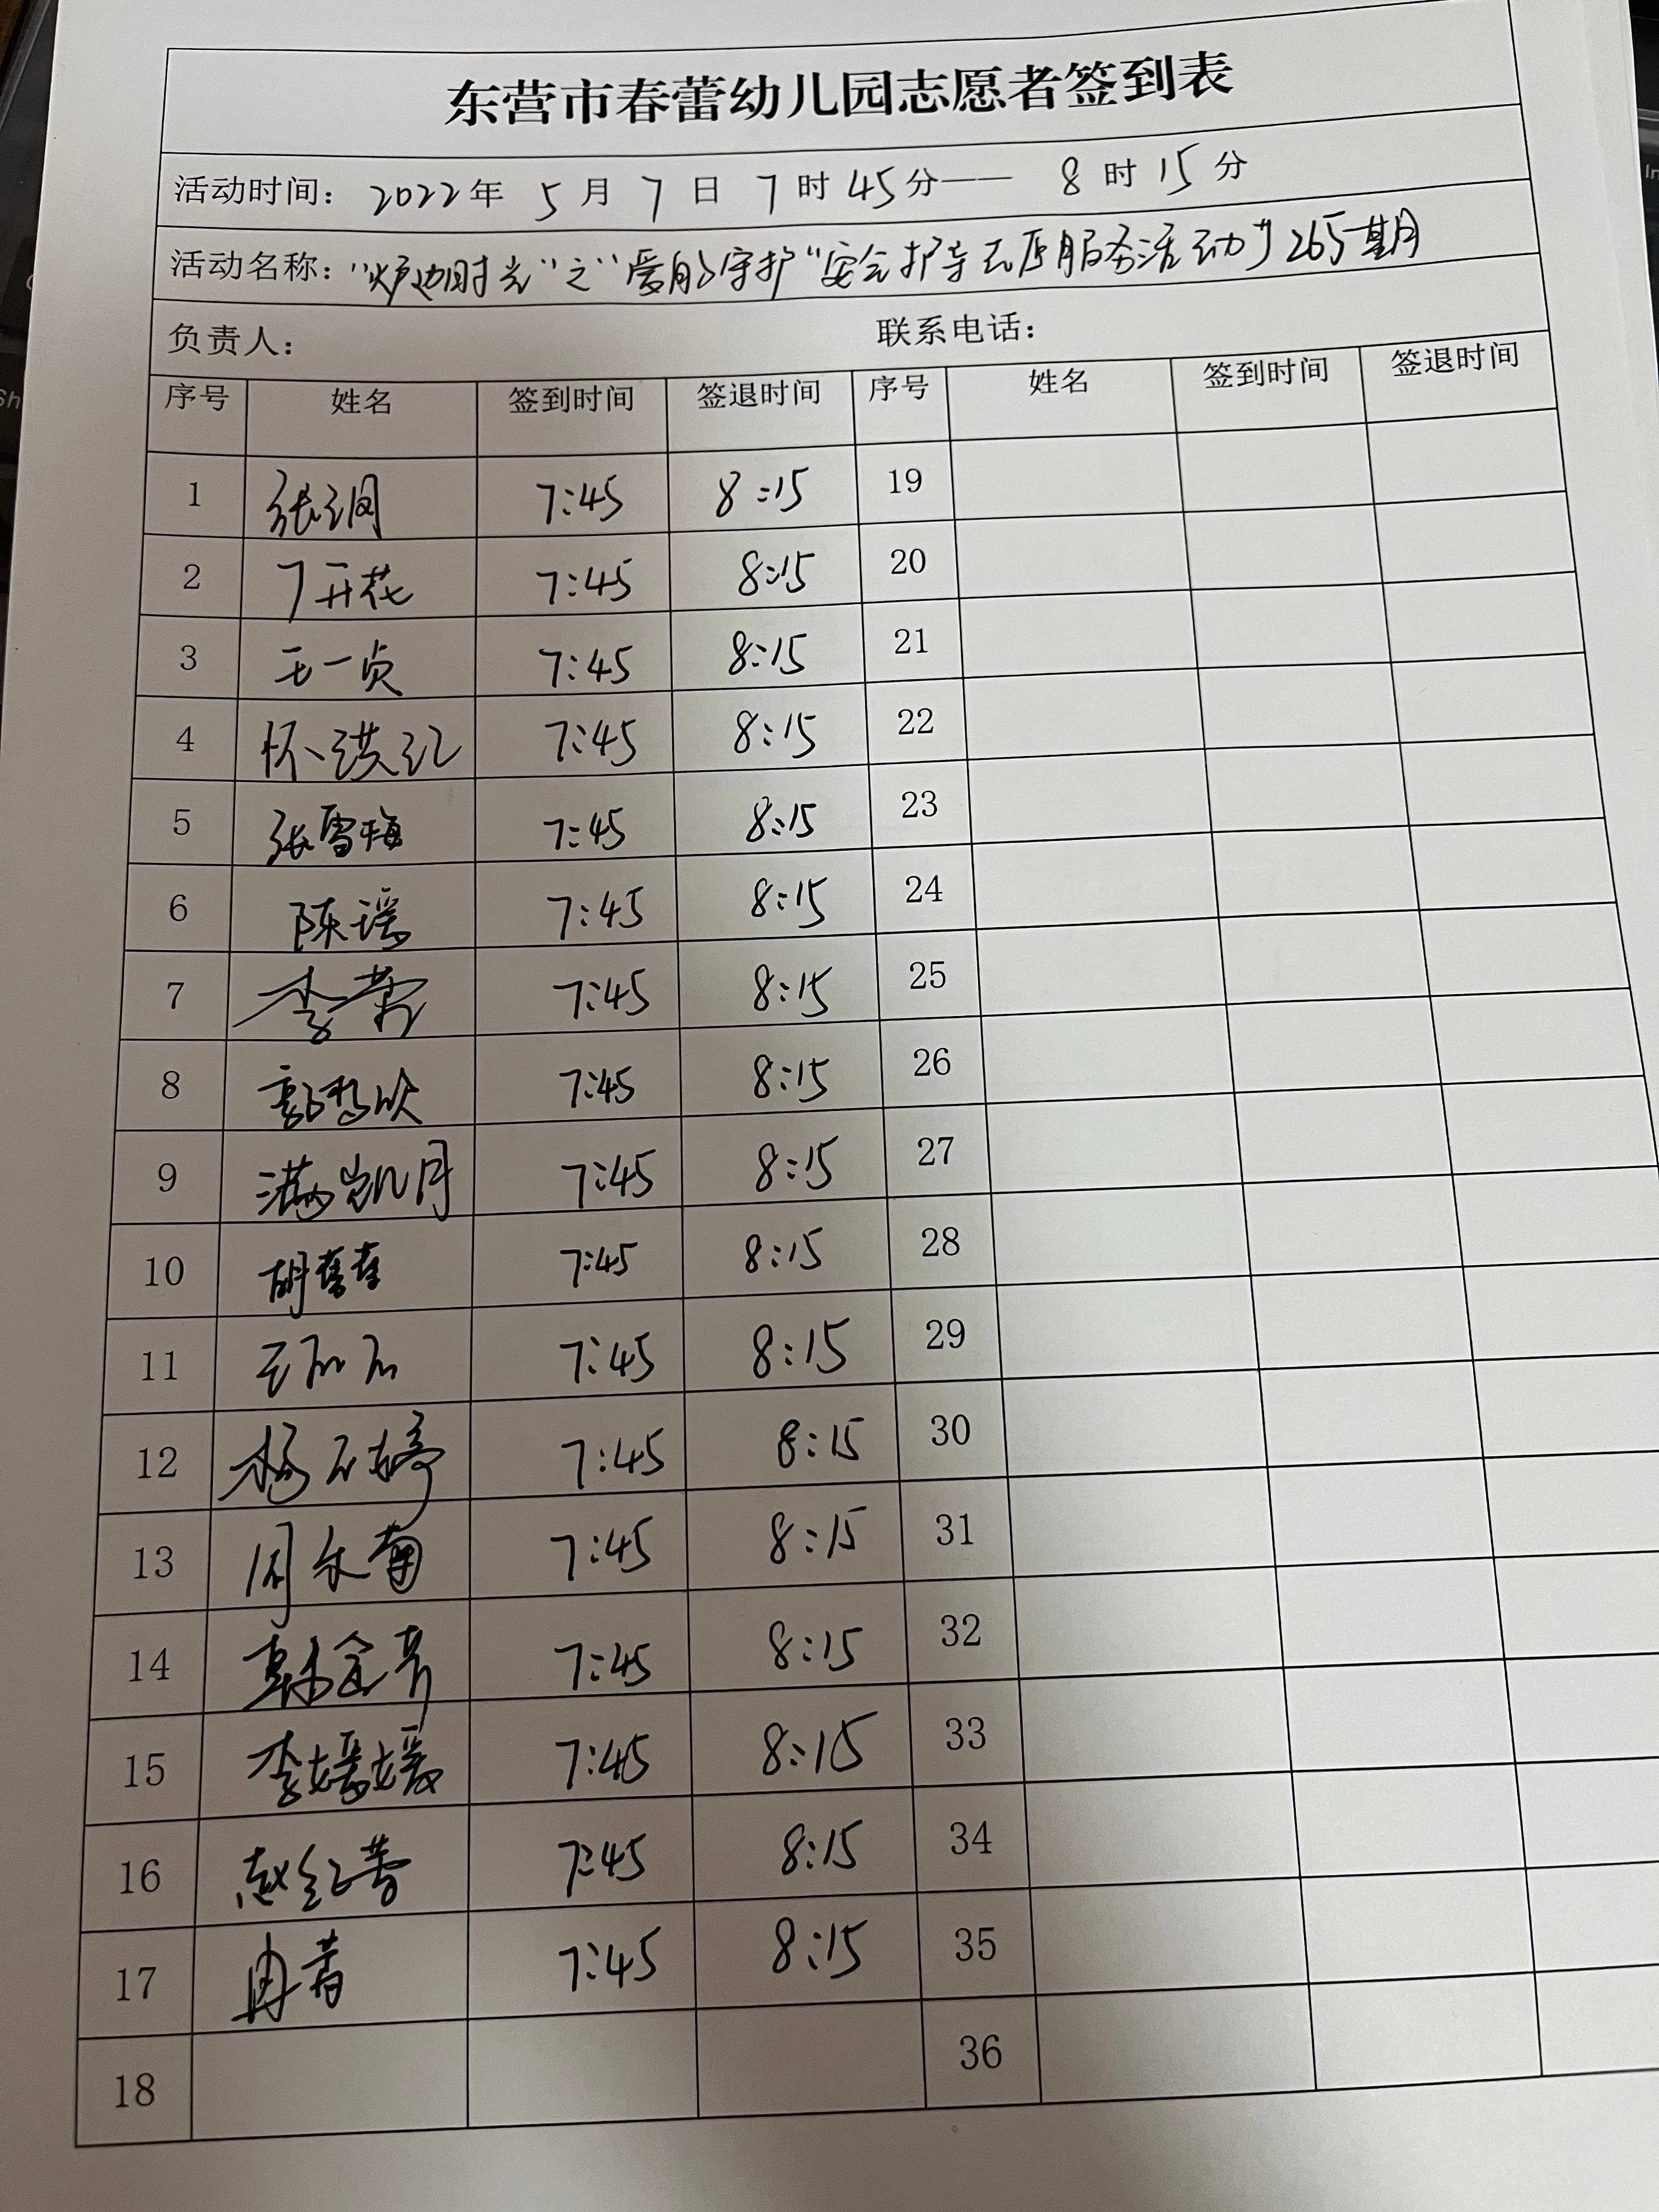 东营市春蕾幼儿园志愿者签到表
活动时间：2022年 5月 7日 7时45分—— 8时15分
活动名称："炉边时光"之"爱的守护"安全护导志愿服务活动 265期
负责人： 联系电话：
序号 姓名 签到时间 签退时间 序号 姓名 签到时间 签退时间
1 张润 7:45 8:15 19
2 丁开花 7:45 8:15 20
3 王一贞 7:45 8:15 21
4 怀洪江 7:45 8:15 22
5 张雪梅 7:45 8:15 23
6 陈瑶 7:45 8:15 24
7 李 7:45 8:15 25
8 郭 欣 7:45 8:15 26
9 满凯月 7:45 8:15 27
10 胡蕾蕾 7:45 8:15 28
11 王 7:45 8:15 29
12 杨 婷 7:45 8:15 30
13 周 7:45 8:15 31
14 韩金芳 7:45 8:15 32
15 李媛媛 7:45 8:15 33
16 赵红蕾 7:45 8:15 34
17 冉蕾 7:45 8:15 35
18 36